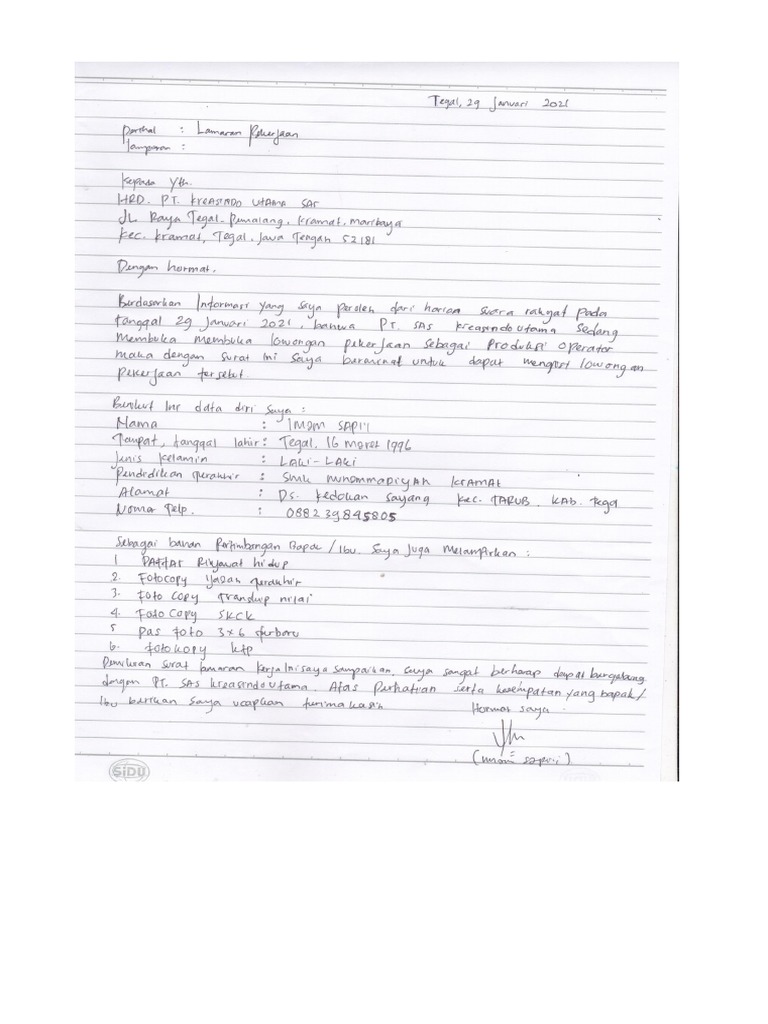 Tegal, 29 Januari 2021
Perihal : Lamaran Pekerjaan
Lampiran :
Kepada Yth.
HRD. PT. KREASINDO UTAMA SAS
JL. Raya Tegal. Pemalang. Kramat. Maribaya
Kec. Kramat, Tegal. Jawa Tengah 52181
Dengan hormat.
Berdasarkan Informasi yang saya peroleh dari harian suara rakyat pada
tanggal 29 Januari 2021, bahwa PT. SAS kreasindo utama sedang
Membuka membuka lowongan pekerjaan sebagai Produksi Operator
maka dengan surat ini saya berminat untuk dapat mengisi lowongan
pekerjaan tersebut.
Berikut ini data diri saya :
Nama : IMAM SAPI'I
Tempat, tanggal lahir : Tegal. 16 Maret 1996
Jenis Kelamin : LAki-LAki
Pendidikan terakhir : SMK MUHAMMADIYAH KRAMAT
Alamat : Ds. Kedokan Sayang Kec. TARUB. KAB. Tega
Nomor Telp. : 088239845805
Sebagai bahan Pertimbangan Bapak / Ibu. Saya Juga Melampirkan :
1 DAFTAR Riwayat hidup
2. Fotocopy Ijazah terakhir
3. Foto Copy transkip nilai
4. Foto Copy SKCK
5 Pas Foto 3x6 terbaru
6. fotokopy ktp
Demikian surat lamaran kerja ini saya sampaikan. Saya sangat berharap dapat bergabung
dengan PT. SAS kreasindo utama. Atas Perhatian serta kesempatan yang bapak/
Ibu berikan Saya ucapkan terima kasih
Hormat saya
(Imam sapi'i)
SiDU